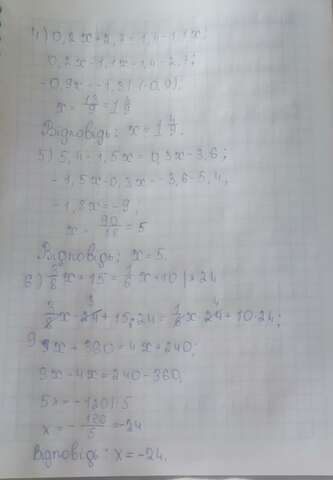 4) 0,2x+2,7=1,4-1,1x;
0,2x-1,1x=1,4-2,7;
-0,9x=-1,3|:(-0,9);
x = 13/9 = 1 4/9
Відповідь: x = 1 4/9.
5) 5,4-1,5x=0,3x-3,6;
-1,5x-0,3x=-3,6-5,4;
-1,8x=-9,
x = 90/18 = 5
Відповідь: x=5.
6) 3/8 x + 15 = 1/6 x + 10 | × 24
3/8 x · 24 + 15 · 24 = 1/6 x · 24 + 10 · 24;
9x + 360 = 4x + 240;
9x - 4x = 240 - 360;
5x = -120|:5
x = - 120/5 = -24
Відповідь: x = -24.